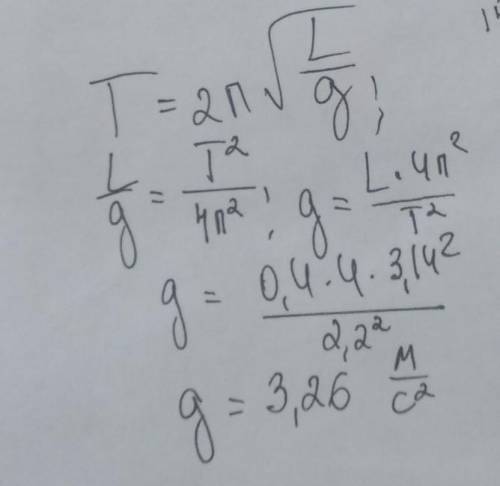 T = 2π√(L/g);
L/g = T²/4π²; g = L·4π²/T²
g = 0,4·4·3,14²/2,2²
g = 3,26 м/с²